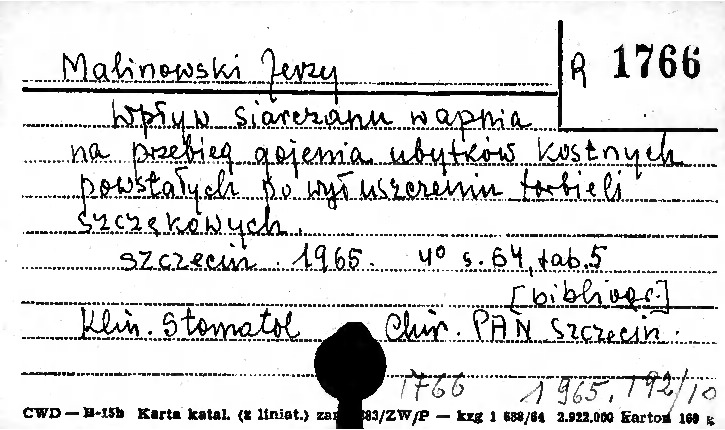 Malinowski Jerzy
R 1766
Wpływ siarczanu wapnia
na przebieg gojenia ubytków kostnych
powstałych po wyłuszczeniu torbieli
szczękowych.
Szczecin. 1965. 4° s. 64, tab. 5
[bibliogr.]
Klin. Stomatol Chir. PAN Szczecin.
1766 1965.192/10
CWD — H-15b Karta katal. (z liniat.) 83/ZW/P — kzg 1 688/64 2.922.000 Karton 160 g